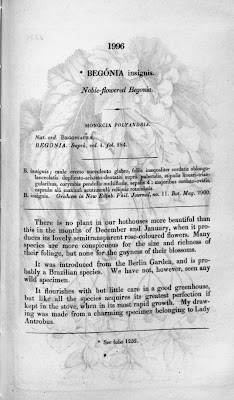 1996
* BEGÓNIA insignis.
Noble-flowered Begonia.
MONŒCIA POLYANDRIA.
Nat. ord. BEGONIACEÆ.
BEGONIA. Suprà, vol. 4. fol. 284.
B. insignis; caule erecto succulento glabro, foliis inæqualiter cordatis oblongo-
lanceolatis duplicato-serratis
supra pubendis, stipulis
gularibus, corymbis pendulis multifloris, sepalis 4: majoribus cordato-ovatis,
capsulæ alâ maximâ acutiusculâ reliquis rotundatis.
B. insignis. Graham in New Edinb. Phil. Journal, no. 11. Bot. Mag. 2900.
There is no plant in our hothouses more beautiful than
this in the months of December and January, when it pro-
duces its lovely semitransparent rose-coloured flowers. Many
species are more conspicuous for the size and richness of
their foliage, but none for the gayness of their blossoms.
It was introduced from the Berlin Garden, and is pro-
bably a Brazilian species. We have not, however, seen any
wild specimen.
It flourishes with but little care in a good greenhouse,
but like all the species acquires its greatest perfection if
kept in the stove, when in its most rapid growth. My draw-
ing was made from a charming specimen belonging to Lady
Antrobus.
* See folio 1252.